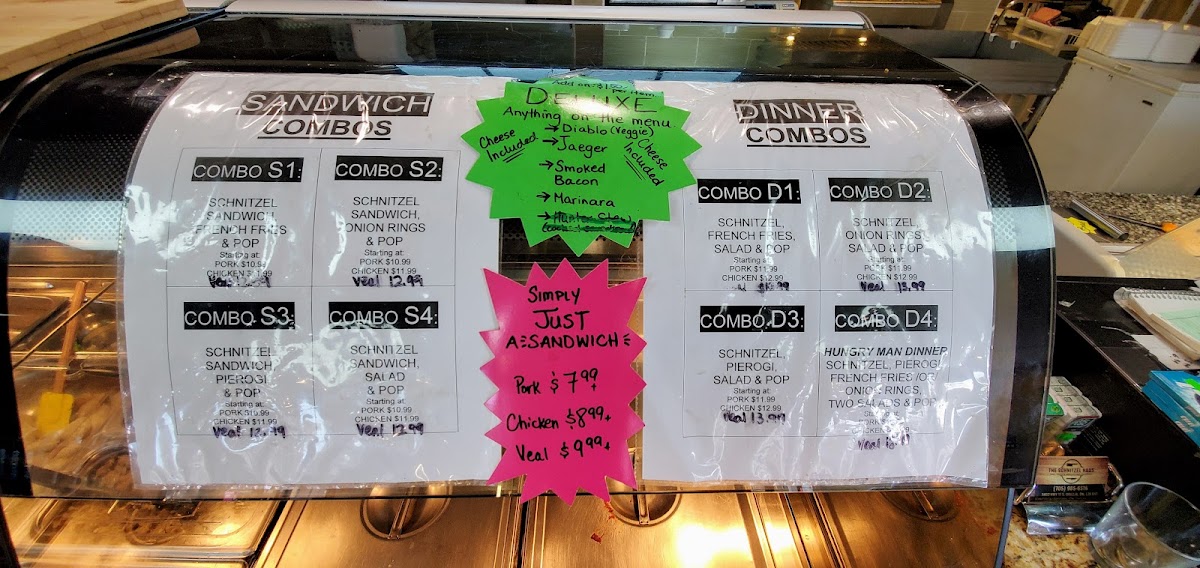 SANDWICH
COMBOS
COMBO S1:
SCHNITZEL
SANDWICH,
FRENCH FRIES
& POP
Starting at:
PORK $10.99
CHICKEN $11.99
Veal 12.99
COMBO S2:
SCHNITZEL
SANDWICH,
ONION RINGS
& POP
Starting at:
PORK $10.99
CHICKEN $11.99
Veal 12.99
COMBO S3:
SCHNITZEL
SANDWICH,
PIEROGI
& POP
Starting at:
PORK $10.99
CHICKEN $11.99
Veal 12.99
COMBO S4:
SCHNITZEL
SANDWICH,
SALAD
& POP
Starting at:
PORK $10.99
CHICKEN $11.99
Veal 12.99
Add on $1.50
per item
DELUXE
Anything on the menu
Cheese
Included
→ Diablo (Veggie)
→ Jaeger
→ Smoked
Bacon
→ Marinara
Cheese
Included
SIMPLY
JUST
A SANDWICH
Pork $7.99+
Chicken $8.99+
Veal $9.99+
DINNER
COMBOS
COMBO D1:
SCHNITZEL,
FRENCH FRIES,
SALAD & POP
Starting at:
PORK $11.99
CHICKEN $12.99
COMBO D2:
SCHNITZEL,
ONION RINGS,
SALAD & POP
Starting at:
PORK $11.99
CHICKEN $12.99
Veal 13.99
COMBO D3:
SCHNITZEL,
PIEROGI,
SALAD & POP
Starting at:
PORK $11.99
CHICKEN $12.99
Veal 13.99
COMBO D4:
HUNGRY MAN DINNER
SCHNITZEL, PIEROGI,
FRENCH FRIES /OR
ONION RINGS,
TWO SALADS & POP
Starting at:
PORK
CHICKEN
Veal
THE SCHNITZEL HAUS